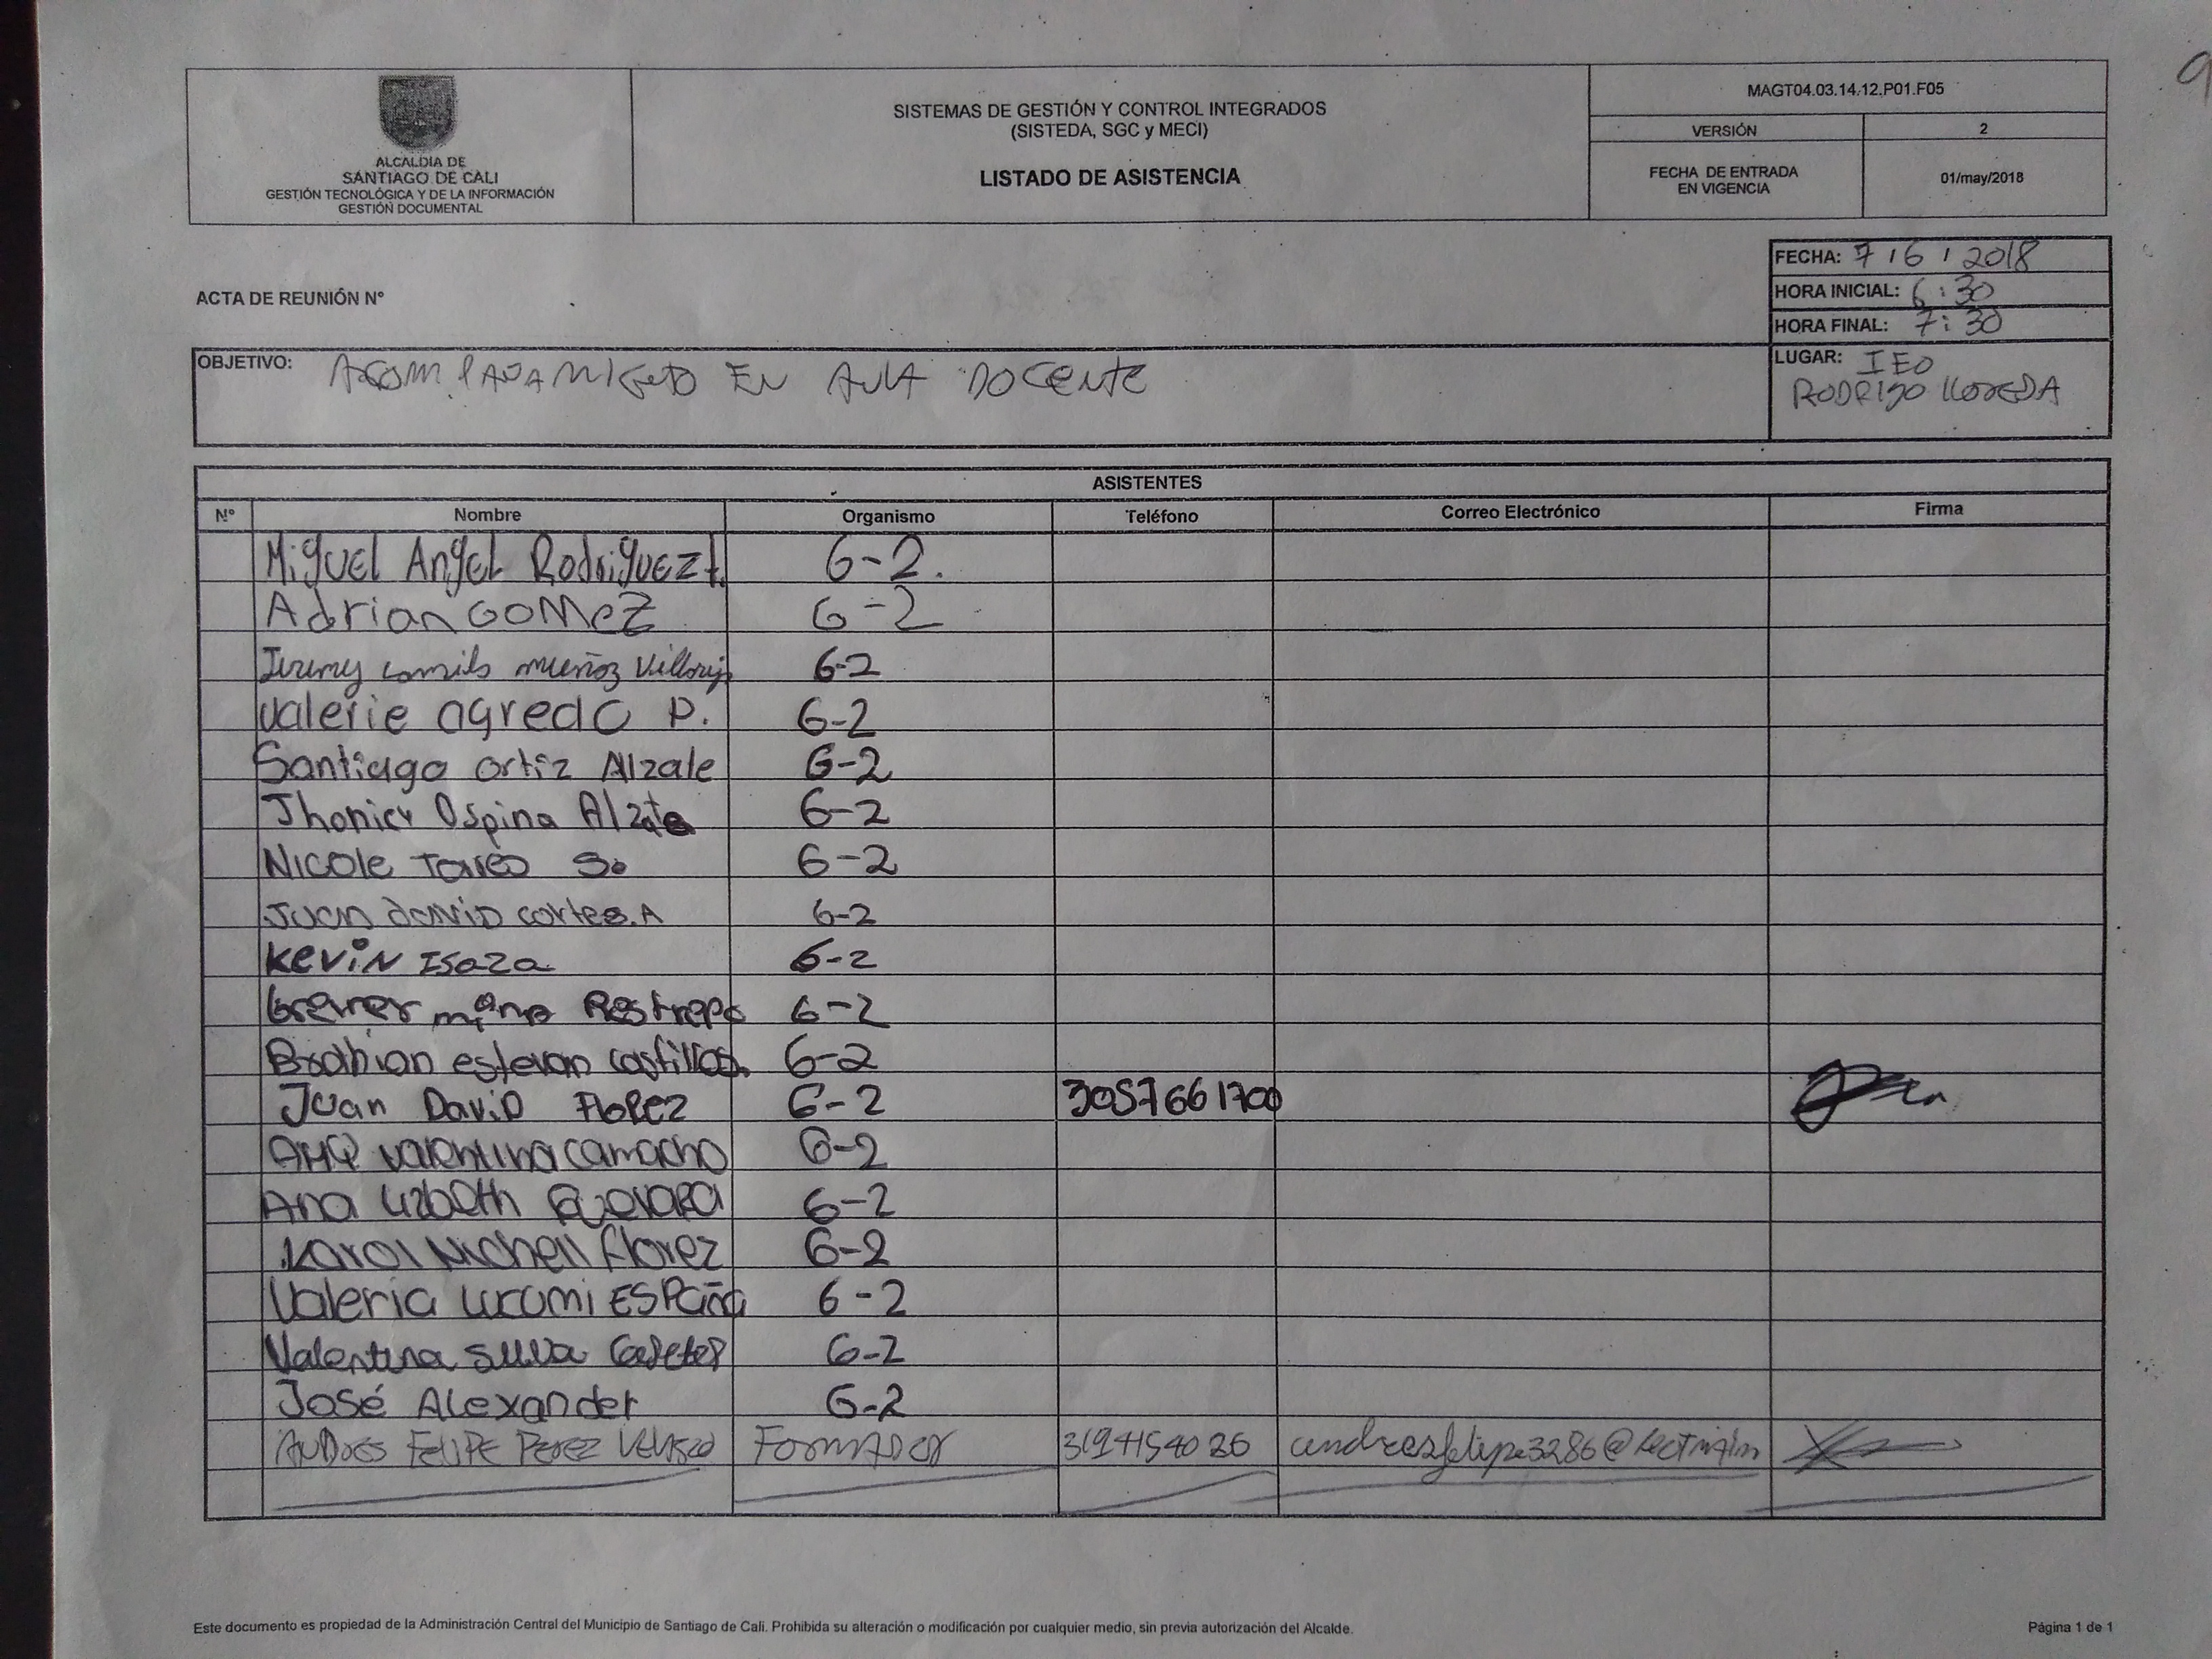 ALCALDÍA DE
SANTIAGO DE CALI
GESTIÓN TECNOLÓGICA Y DE LA INFORMACIÓN
GESTIÓN DOCUMENTAL
SISTEMAS DE GESTIÓN Y CONTROL INTEGRADOS
(SISTEDA, SGC y MECI)
LISTADO DE ASISTENCIA
MAGT04.03.14.12.P01.F05
VERSIÓN 2
FECHA DE ENTRADA
EN VIGENCIA 01/may/2018
ACTA DE REUNIÓN N°
FECHA: 7 / 6 / 2018
HORA INICIAL: 6:30
HORA FINAL: 7:30
OBJETIVO: ACOMPAÑAMIENTO EN AULA DOCENTE
LUGAR: IEO
RODRIGO LLOREDA
ASISTENTES
N° Nombre Organismo Teléfono Correo Electrónico Firma
Miguel Angel Rodriguez 6-2.
Adrian GOMeZ 6-2
muñoz 6-2
valerie agredo P. 6-2
Santiago ortiz Alzate 6-2
Ospina Alzate 6-2
Nicole 6-2
Juan david cortes.A 6-2
KeviN Isaza 6-2
mina Restrepo 6-2
estevan 6-2
Juan DaviD FloRez 6-2 3057661700
valentina camacho 6-2
Ana 6-2
Karol Nichell florez 6-2
Valeria lucumi ESPaña 6-2
Valentina Silva 6-2
José Alexander 6-2
ANDRES FELIPE PEREZ VELASCO FORMADOR
Este documento es propiedad de la Administración Central del Municipio de Santiago de Cali. Prohibida su alteración o modificación por cualquier medio, sin previa autorización del Alcalde.
Página 1 de 1